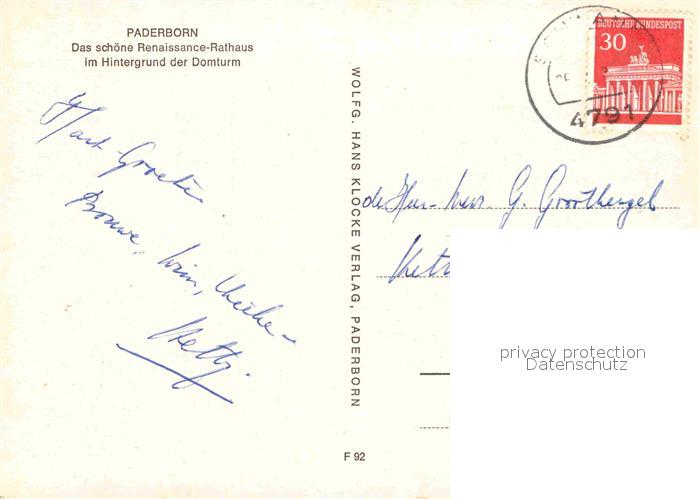 PADERBORN
Das schöne Renaissance-Rathaus
im Hintergrund der Domturm
Hart. Groeten.
Douwe, Wim,
Hetty.
WOLFG. HANS KLOCKE VERLAG, PADERBORN
F 92
DEUTSCHE BUNDESPOST
30
4791
de Hr. G.
privacy protection
Datenschutz